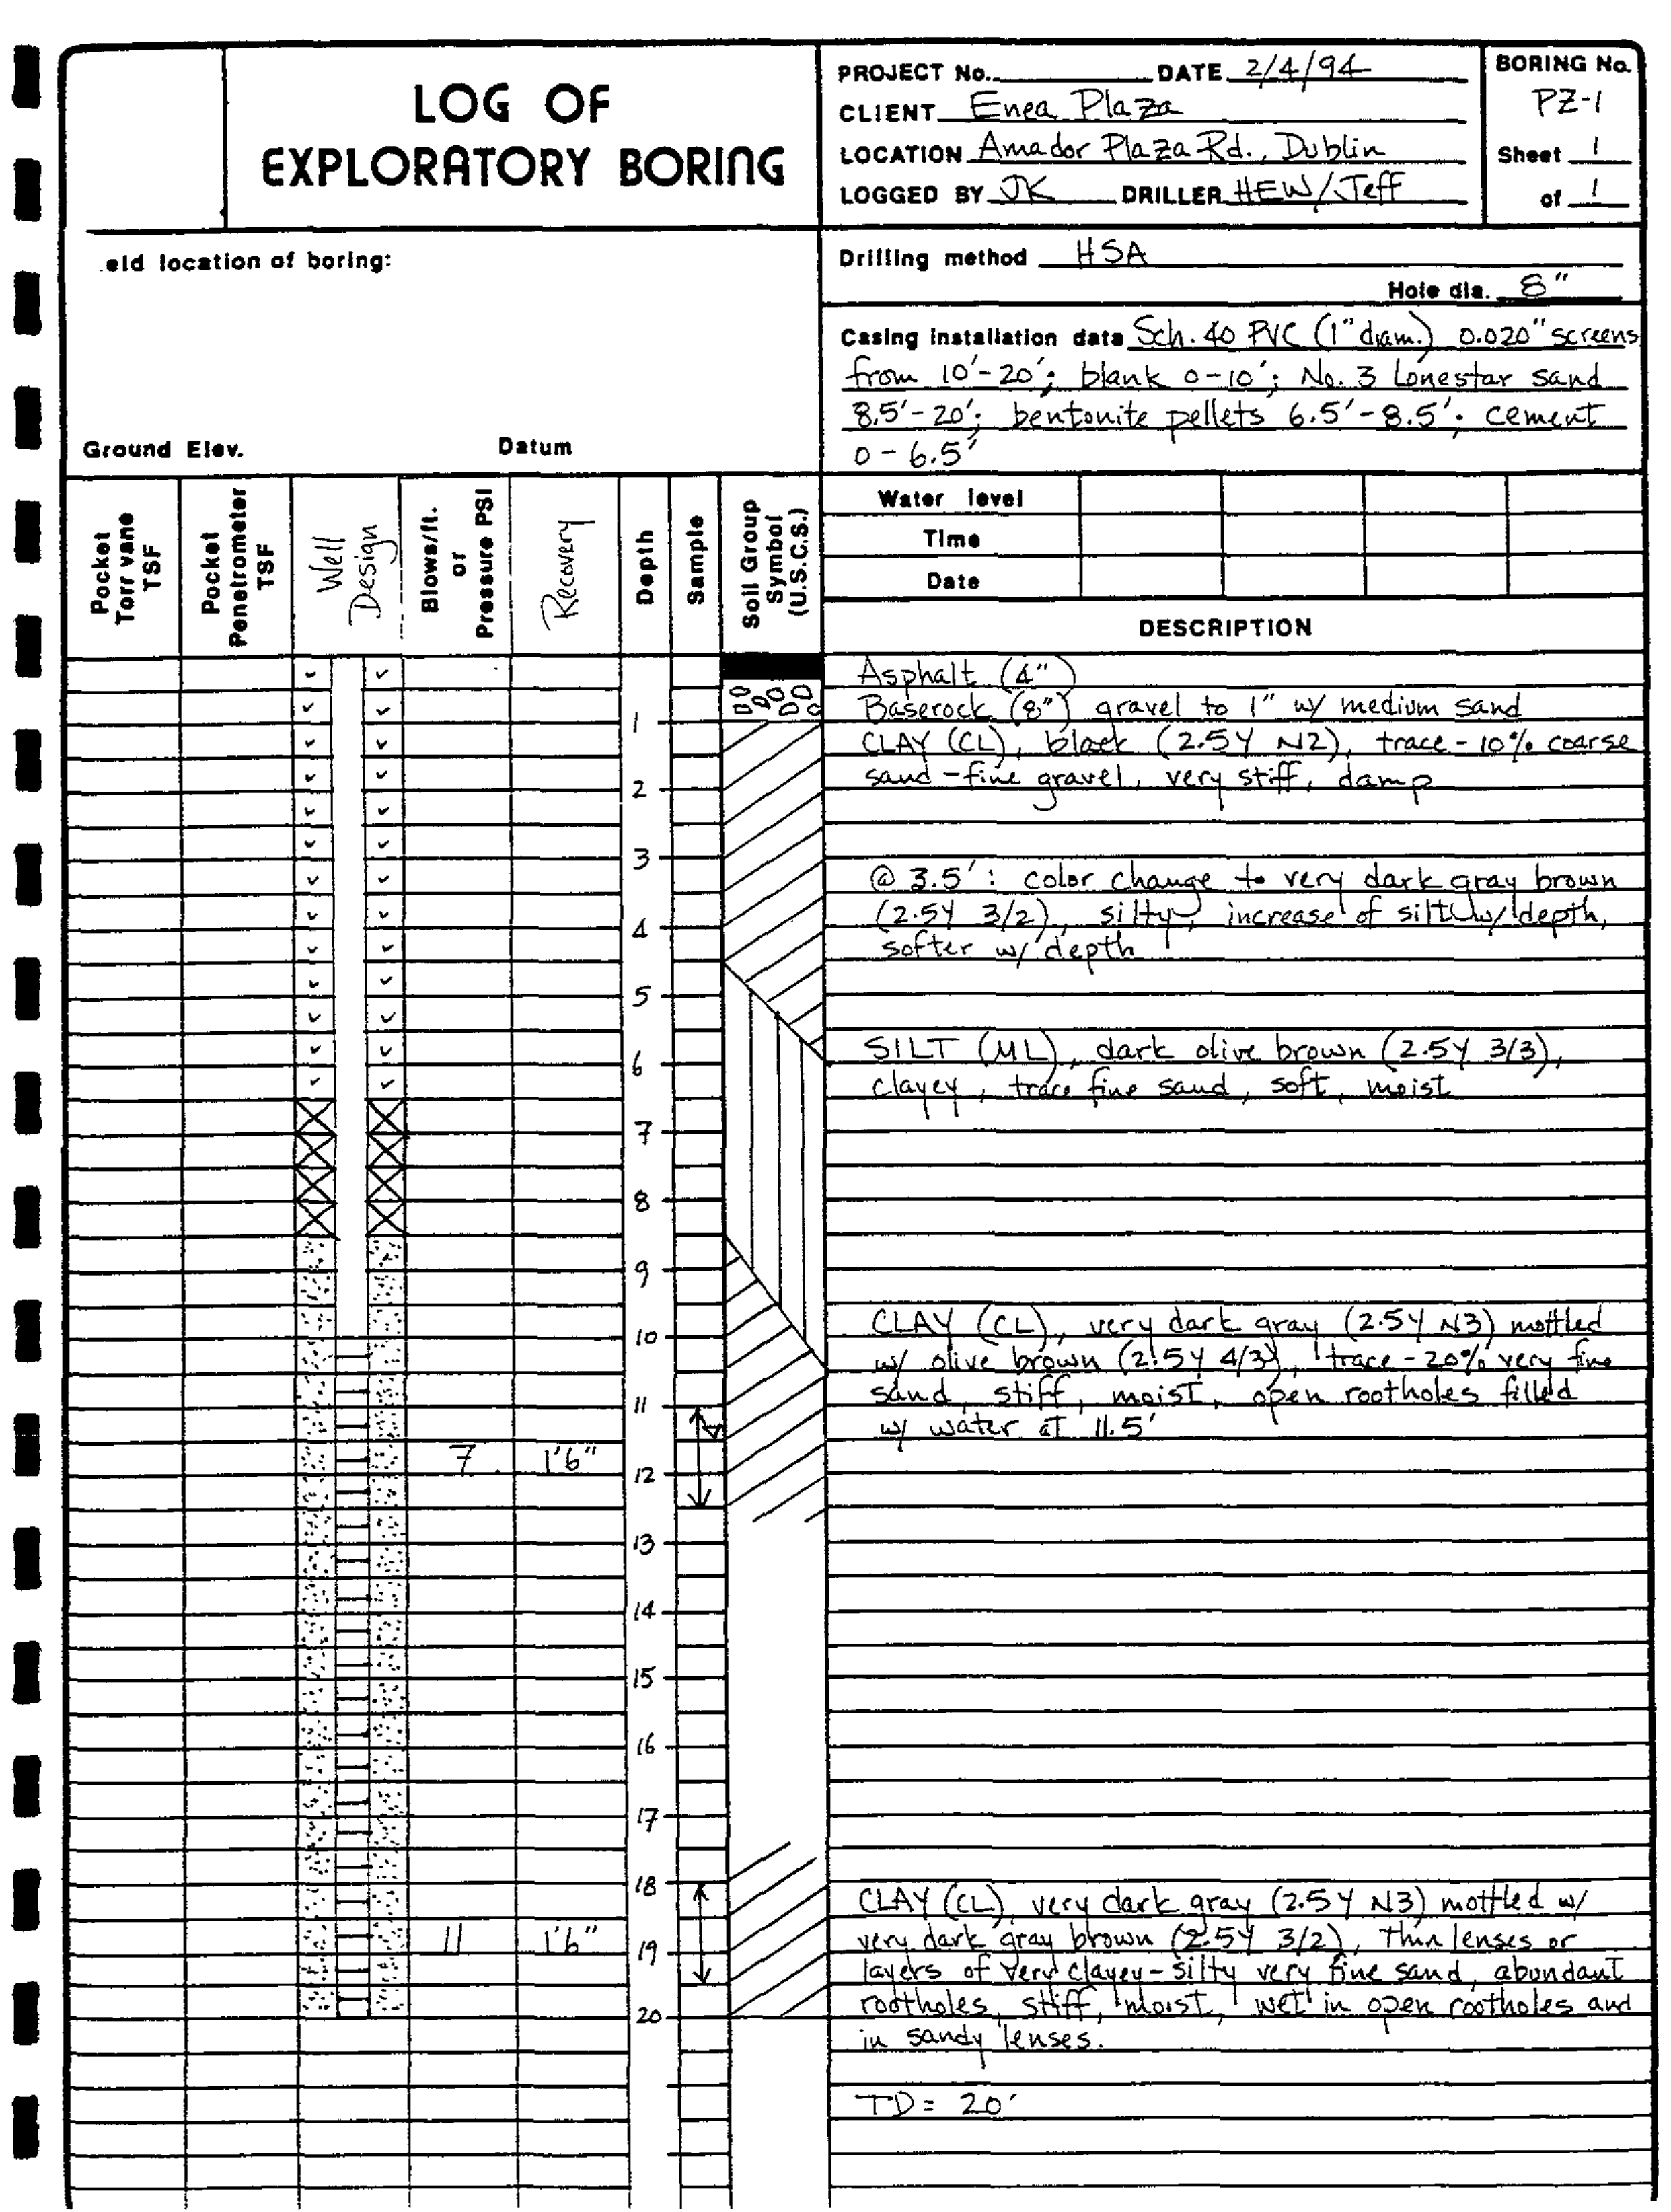 LOG OF
EXPLORATORY BORING
PROJECT No. DATE 2/4/94
CLIENT Enea Plaza
LOCATION Amador Plaza Rd., Dublin
LOGGED BY JK DRILLER HEW/Jeff
BORING No.
PZ-1
Sheet 1
of 1
eld location of boring:
Ground Elev. Datum
Drilling method HSA
Hole dia. 8"
Casing installation data Sch. 40 PVC (1" diam.) 0.020" screens
from 10'-20'; blank 0-10'; No. 3 Lonestar sand
8.5'-20'; bentonite pellets 6.5'-8.5'; cement
0-6.5'
Pocket Torrvane TSF
Pocket Penetrometer TSF
Well Design
Blows/ft. or Pressure PSI
Recovery
Depth
Sample
Soil Group Symbol (U.S.C.S.)
Water level
Time
Date
DESCRIPTION
Asphalt (4")
Baserock (8") gravel to 1" w/ medium sand
1
CLAY (CL), black (2.5Y N2), trace-10% coarse
sand-fine gravel, very stiff, damp
2
3
@ 3.5': color change to very dark gray brown
(2.5Y 3/2), silty, increase of silt w/ depth,
4
softer w/ depth
5
SILT (ML), dark olive brown (2.5Y 3/3),
6
clayey, trace fine sand, soft, moist
7
8
9
10
CLAY (CL), very dark gray (2.5Y N3) mottled
w/ olive brown (2.5Y 4/3), trace-20% very fine
sand, stiff, moist, open rootholes filled
11
w/ water at 11.5'
7 1'6"
12
13
14
15
16
17
18
CLAY (CL), very dark gray (2.5Y N3) mottled w/
very dark gray brown (2.5Y 3/2), thin lenses or
11 1'6"
19
layers of very clayey-silty very fine sand, abundant
rootholes, stiff, moist, wet in open rootholes and
20
in sandy lenses.
TD = 20'